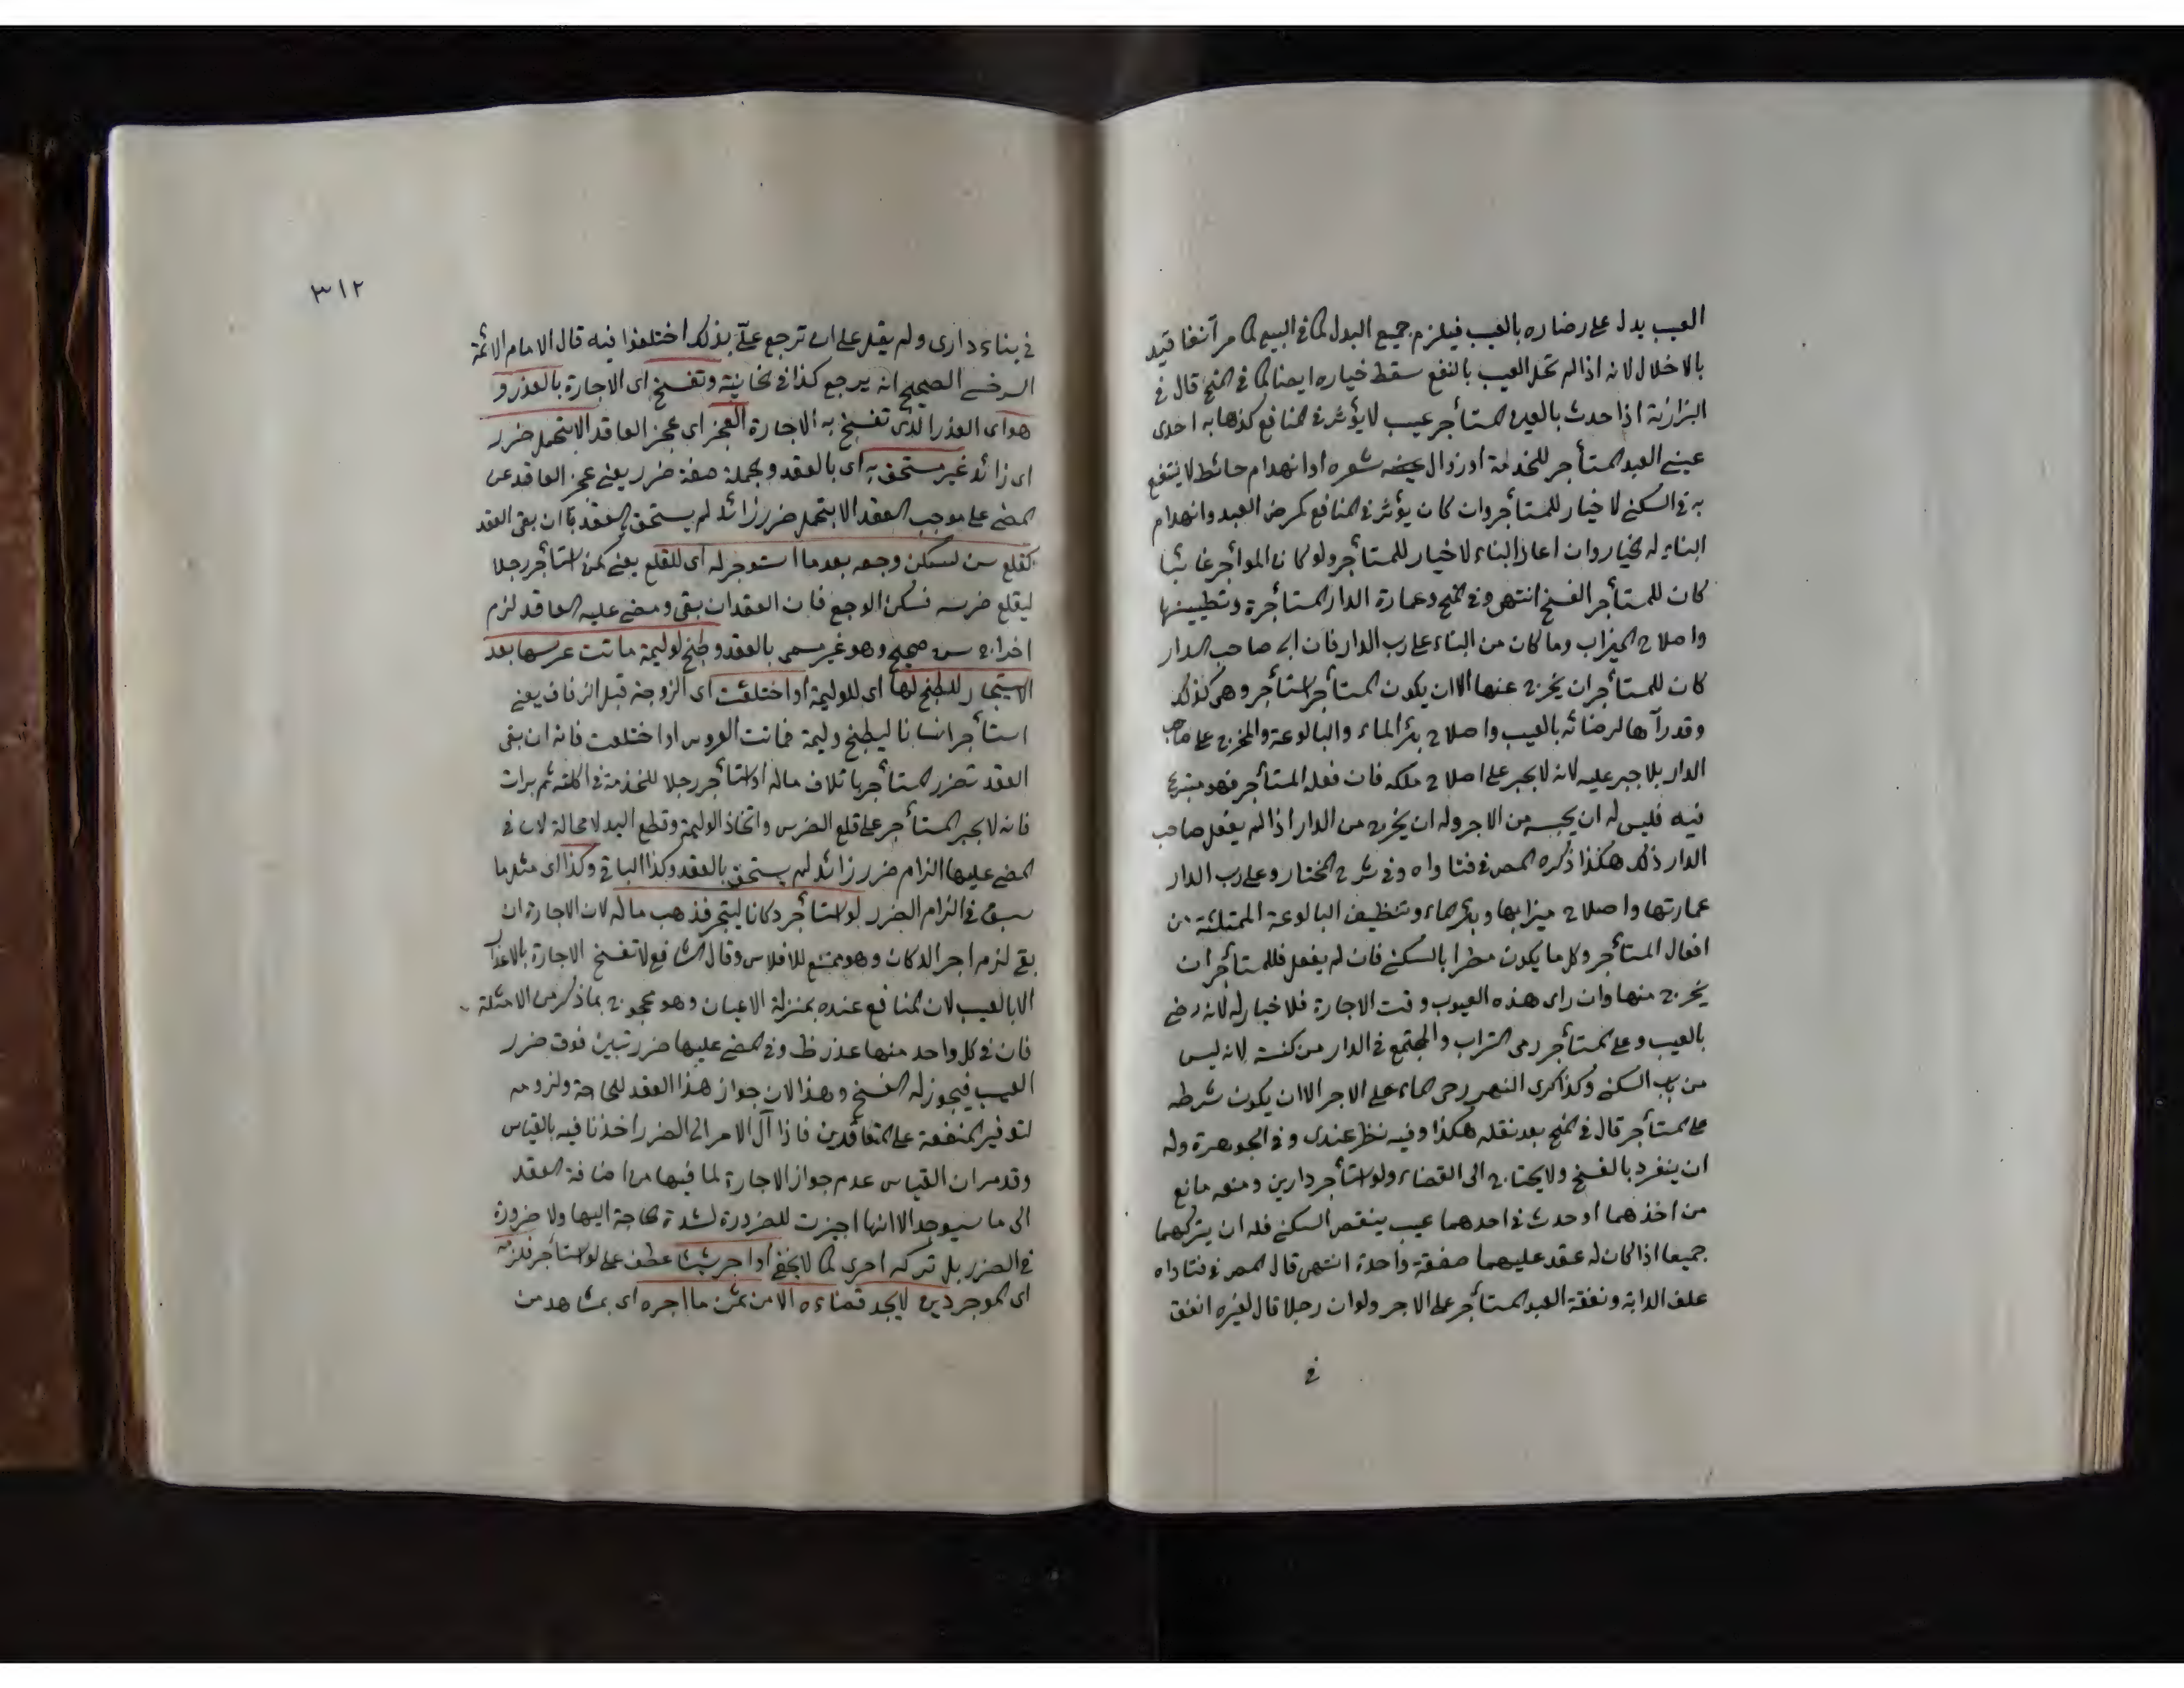 العيب يدل على رضاره بالعيب فيلزم جميع البدل كما في البيع كما مر آنفا قيد
بالاخلال لانه اذا لم تخل العيب بالنفع سقط خياره ايضا كما في المنح قال في
البزازية اذا حدث بالعين المستأجر عيب لا يؤثر في المنافع كذهابه احدى
عيني العبد المستأجر للخدمة او زوال شعره او انهدام حائط لا ينتفع
به في السكنى لا خيار للمستأجر وان كان يؤثر في المنافع كمرض العبد وانهدام
البناء له الخيار وان اعاد البناء لا خيار للمستأجر ولو كان المواجر غائبا
كان للمستأجر الفسخ انتهى وفي المنح وعمارة الدار المستأجرة وتطيينها
واصلاح الميزاب وما كان من البناء على رب الدار فان ابى صاحب الدار
كان للمستأجر ان يخرج عنها الا ان يكون المستأجر استأجر وهى كذلك
وقد رآها لرضائه بالعيب واصلاح بئر الماء والبالوعة والمخرج على صاحب
الدار بلا جبر عليه لانه لا يجبر على اصلاح ملكه فان فعله المستأجر فهو متبرع
فيه فليس له ان يحبسه من الاجر وله ان يخرج من الدار اذا لم يفعل صاحب
الدار ذلك هكذا ذكره المص في فتاواه وفي شرح المختار وعلى رب الدار
عمارتها واصلاح ميزابها وبئر الماء وتنظيف البالوعة الممتلئة من
افعال المستأجر وكل ما يكون مضرا بالسكنى فان لم يفعل فللمستأجر ان
يخرج منها وان راى هذه العيوب وقت الاجارة فلا خيار له لانه رضى
بالعيب وعلى المستأجر رمى التراب والمجتمع في الدار من كنسه لانه ليس
من باب السكنى وكذا كرى النهر رحى الماء على الاجر الا ان يكون شرطه
على المستأجر قال في المنح بعد نقله هكذا وفيه نظر عندى وفي الجوهرة وله
ان ينفرد بالفسخ ولا يحتاج الى القضاء ولو استأجر دارين ومنعه مانع
من اخذهما او حدث في احدهما عيب ينقص السكنى فله ان يتركهما
جميعا اذا كان له عقد عليهما صفقة واحدة انتهى قال المص في فتاواه
علف الدابة ونفقة العبد المستأجر على الاجر ولو ان رجلا قال لغيره انفق
في
٣١٢
في بناء دارى ولم يقل على ان ترجع علىّ بذلك اختلفوا فيه قال الامام الائمة
السرخسى الصحيح انه يرجع كذا في الخانية وتفسخ اى الاجارة بالعذر و
هو اى العذر الذى تفسخ به الاجارة العجز اى عجز العاقد الا بتحمل ضرر
اى زائد غير مستحق به اى بالعقد والجملة صفة ضرر يعنى عجز العاقد عن
المضى على موجب العقد الا بتحمل ضرر زائد لم يستحق بالعقد بان بقى العقد
كقلع سن لسكن وجعه بعد ما استوجر له اى للقلع يعنى كمن استأجر رجلا
ليقلع ضرسه فسكن الوجع فان العقد ان بقى ومضى عليه العاقد لزم
اخراج سن صحيح وهو غير مسمى بالعقد وطبخ لوليمة ماتت عرسها بعد
الاستيجار للطبخ لها اى للوليمة او اختلعت اى الزوجة قبل الزفاف يعنى
استأجر انسانا ليطبخ وليمة فماتت العروس او اختلعت فانه ان بقى
العقد تضرر المستأجر باتلاف ماله او استأجر رجلا للخدمة في اكلته ثم برات
فانه لا يجبر المستأجر على قلع الضرس واتخاذ الوليمة وقطع اليد لا محالة لان في
المضى عليها الزام ضرر زائد لم يستحق بالعقد وكذا الباقي وكذا اى مثل ما
سبق في الزام الضرر لو استأجر دكانا ليتجر فذهب ماله لان الاجارة ان
بقى لزمه اجر الدكان وهو ممتنع للافلاس وقال الشافعى لا تفسخ الاجارة بالاعذار
الا بالعيب لان المنافع عنده بمنزلة الاعيان وهو محجوج بما ذكر من الامثلة
فان في كل واحد منها عذر ظ وفي المضى عليها ضرر تبين فوق ضرر
العيب فيجوز له الفسخ وهذا لان جواز هذا العقد للحاجة ولزومه
لتوفير المنفعة على المتعاقدين فاذا آل الامر الى الضرر اخذنا فيه بالقياس
وقد مر ان القياس عدم جواز الاجارة لما فيها من اضافة العقد
الى ما سيوجد الا انها اجيزت للضرورة لشدة الحاجة اليها ولا ضرورة
في الضرر بل تركه احرى كما لا يخفى او اجر شيئا عطف على لو استأجر فلزمه
اى الموجر دين لا يجد قضاءه الا من ثمن ما اجره اى بمشاهد من